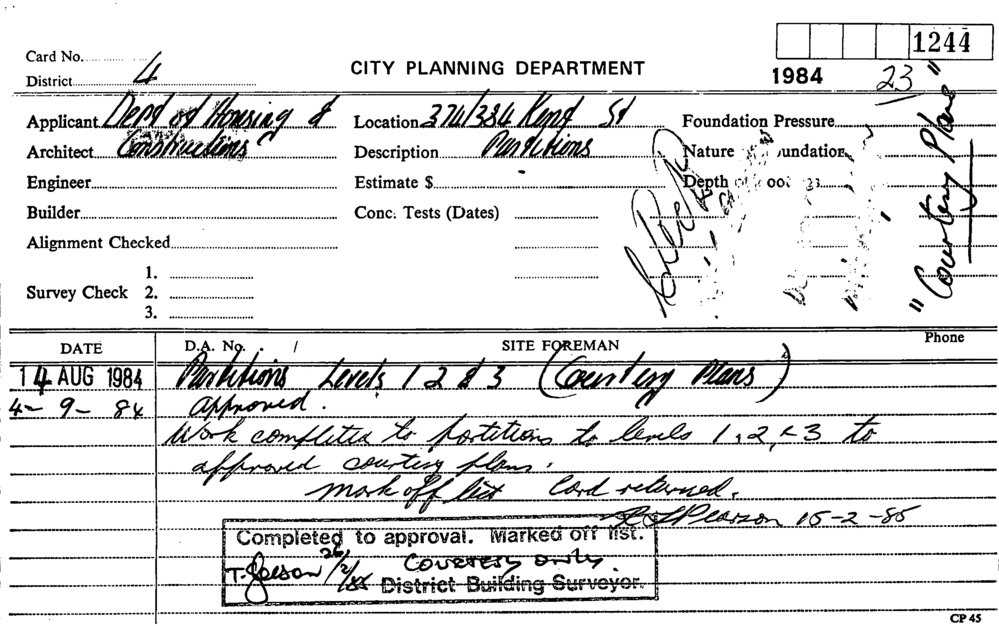 1244
Card No.
CITY PLANNING DEPARTMENT
1984 23
District 4
Applicant Dept of Housing &
Location 374/384 Kent St
Foundation Pressure
Architect Constructions
Description Partitions
Nature
Engineer
Estimate $
Depth
Builder
Conc. Tests (Dates)
Alignment Checked
Survey Check
1.
2.
3.
"Courtesy Plans"
DATE D.A. No. / SITE FOREMAN Phone
14 AUG 1984 Partitions Levels 1 2 & 3 (Courtesy Plans)
4-9-84 approved.
Work completed to partitions to levels 1, 2, & 3 to
approved courtesy plans.
mark off list Card returned.
Pearson 15-2-85
Completed to approval. Marked off list.
26/2/85 COURTESY ONLY.
District Building Surveyor.
CP 45